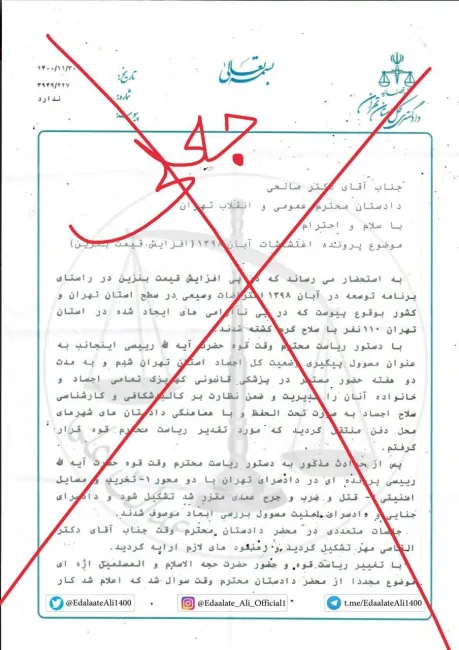 بسمه تعالی
تاریخ: ۱۴۰۰/۱۱/۲۰
شماره: ۳۹۴۹/۲۲۷
پیوست: ندارد
جعلی
جناب آقای دکتر صالحی
دادستان محترم عمومی و انقلاب تهران
با سلام و احترام
موضوع پرونده اغتشاشات آبان ۱۳۹۸ (افزایش قیمت بنزین)
به استحضار می رساند که در پی افزایش قیمت بنزین در راستای
برنامه توسعه در آبان ۱۳۹۸ اعتراضات وسیعی در سطح استان تهران و
کشور بوقوع پیوست که در پی ناآرامی های ایجاد شده در استان
تهران ۱۱۰ نفر با سلاح گرم کشته شدند.
با دستور ریاست محترم وقت قوه حضرت آیه الله رییسی اینجانب به
عنوان مسوول پیگیری وضعیت کل اجساد استان تهران شدم و به مدت
دو هفته حضور مستمر در پزشکی قانونی کهریزک تمامی اجساد و
خانواده آنان را مدیریت و ضمن نظارت بر کالبدشکافی و کارشناسی
سلاح اجساد به صورت تحت الحفظ و با هماهنگی دادستان های شهرهای
محل دفن منتقل گردید که مورد تقدیر ریاست محترم قوه قرار
گرفتم.
پس از حوادث مذکور به دستور ریاست محترم وقت قوه حضرت آیه الله
رییسی پرونده ای در دادسرای تهران با دو محور ۱- تخریب و مسایل
امنیتی ۲- قتل و ضرب و جرح عمدی مقرر شد تشکیل شود و دادسرای
جنایی و دادسرای امنیت مسوول بررسی ابعاد موصوف شدند.
جلسات متعددی در محضر دادستان محترم وقت جناب آقای دکتر
القاصی مهر تشکیل گردید و رهنمود های لازم ارایه گردید.
با تغییر ریاست قوه و حضور حضرت حجه الاسلام و المسلمین اژه ای
موضوع مجددا از محضر دادستان محترم وقت سوال شد که اعلام شد کار
@EdaalateAli1400 @Edaalate_Ali_Official1 t.me/EdaalateAli1400